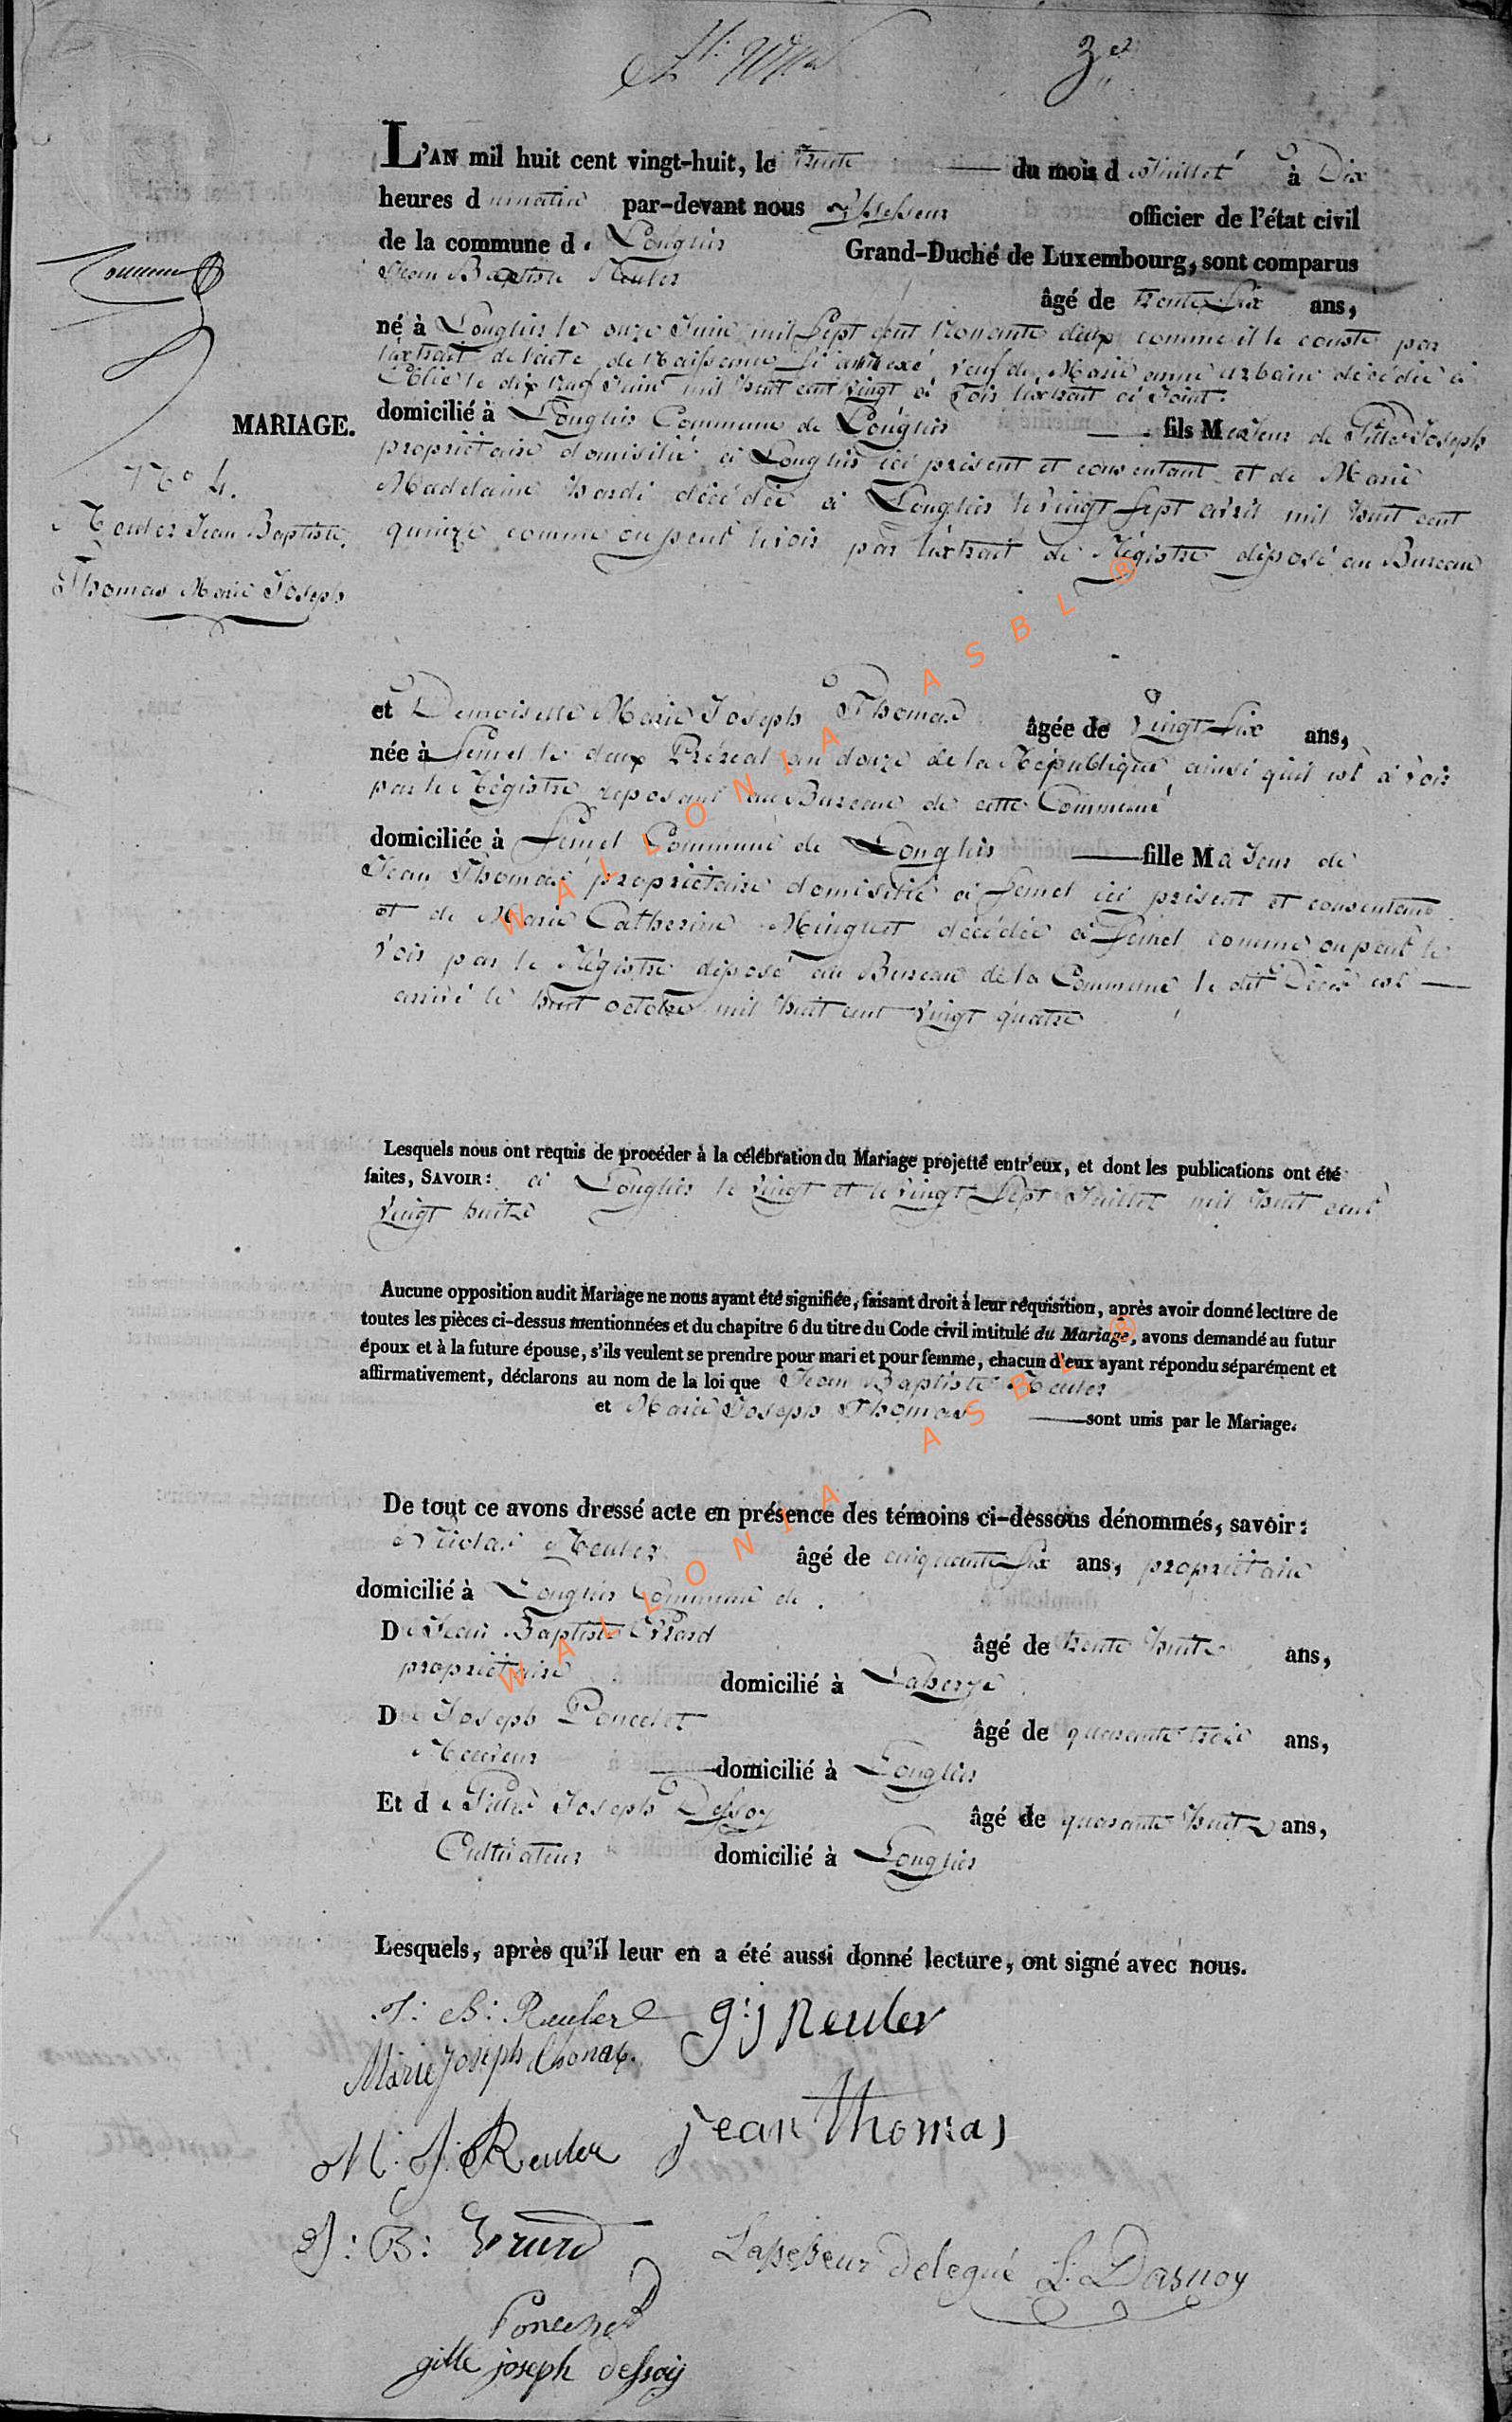 3e
L'AN mil huit cent vingt-huit, le trente du mois de Juillet à Dix
heures du matin par-devant nous assesseur officier de l'état civil
de la commune de Longlier Grand-Duché de Luxembourg, sont comparus
Jean Baptiste Reuler âgé de trente six ans,
né à Longlier le onze Juin mil sept cent nonante deux comme il le conste par
l'extrait de l'acte de Naissance ci annexé veuf de Marie anne urbain décédée à
le dix neuf Juin mil huit cent vingt à voir l'extrait ci Joint.
MARIAGE.
domicilié à Longlier Commune de Longlier fils MaJeur de Gille Joseph
propriétaire domisilié à Longlier ici présent et consentant et de Marie
Madelaine hardi décédée à Longlier le vingt sept avril mil huit cent
quinze comme on peut le voir par l'extrait de Régistre déposé au Bureau
No 4.
Reuler Jean Baptiste,
Thomas Marie Joseph
et Demoiselle Marie Joseph Thomas âgée de vingt six ans,
née à Semel le deux Préreal an douze de la République ainsi qu'il est à voir
par le Régistre deposant au Bureau de cette Commune
domiciliée à Semel Commune de Longlier fille MaJeur de
Jean Thomas propriétaire domisilié à Semel ici présent et consentant
et de Marie Catherine Minguet décédée à Semel comme on peut le
voir par le Régistre déposé au Bureau de la Commune le dit Décès est
arrivé le huit octobre mil huit cent vingt quatre
Lesquels nous ont requis de procéder à la célébration du Mariage projetté entr'eux, et dont les publications ont été
faites, SAVOIR: à Longlier le vingt et le vingt sept Juillet mil huit cent
vingt huit
Aucune opposition audit Mariage ne nous ayant été signifiée, faisant droit à leur réquisition, après avoir donné lecture de
toutes les pièces ci-dessus mentionnées et du chapitre 6 du titre du Code civil intitulé du Mariage, avons demandé au futur
époux et à la future épouse, s'ils veulent se prendre pour mari et pour femme, chacun d'eux ayant répondu séparément et
affirmativement, déclarons au nom de la loi que Jean Baptiste Reuler
et Marie Joseph Thomas sont unis par le Mariage.
De tout ce avons dressé acte en présence des témoins ci-dessous dénommés, savoir:
Nicolas Reuler âgé de cinquante six ans, propriétaire
domicilié à Longlier Commune de.
De Jean Baptiste Erard âgé de trente huit ans,
propriétaire domicilié à Laherye
De Joseph Poncelet âgé de quarante trois ans,
Receveur domicilié à Longlier
Et de Gille Joseph Dessoy âgé de quarante huit ans,
Cultivateur domicilié à Longlier
Lesquels, après qu'il leur en a été aussi donné lecture, ont signé avec nous.
J: B: Reuler g:j Reuler
Marie Joseph thomas.
jean Thomas
N. J. Reuler
J: B: Erard
Lassesseur delegué L. Dasnoy
Poncelet
gille joseph dessoij
WALLONIA ASBL ®
WALLONIA ASBL ®